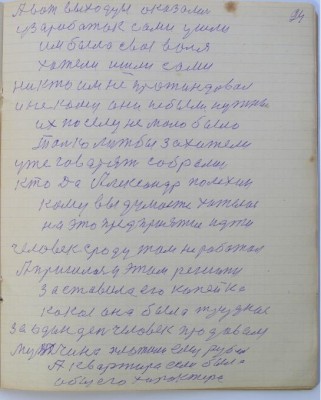 34
А вот выходцы оказали
и заработак сами ушли
им была своя воля
хатели ишли сами
никто им не
и некому они небыли нужны
их по селу не мало было
Толко
уже говарят собрали
кто Да Александр
кому вы думаете хатели
на это предприятие идти
человек сроду там не работал
А пришлось этим решити
Заставила его копейка
кака она была трудная
За один ден человек продавал
Мужчина платил ему рубля
А квартира его была
общего характера